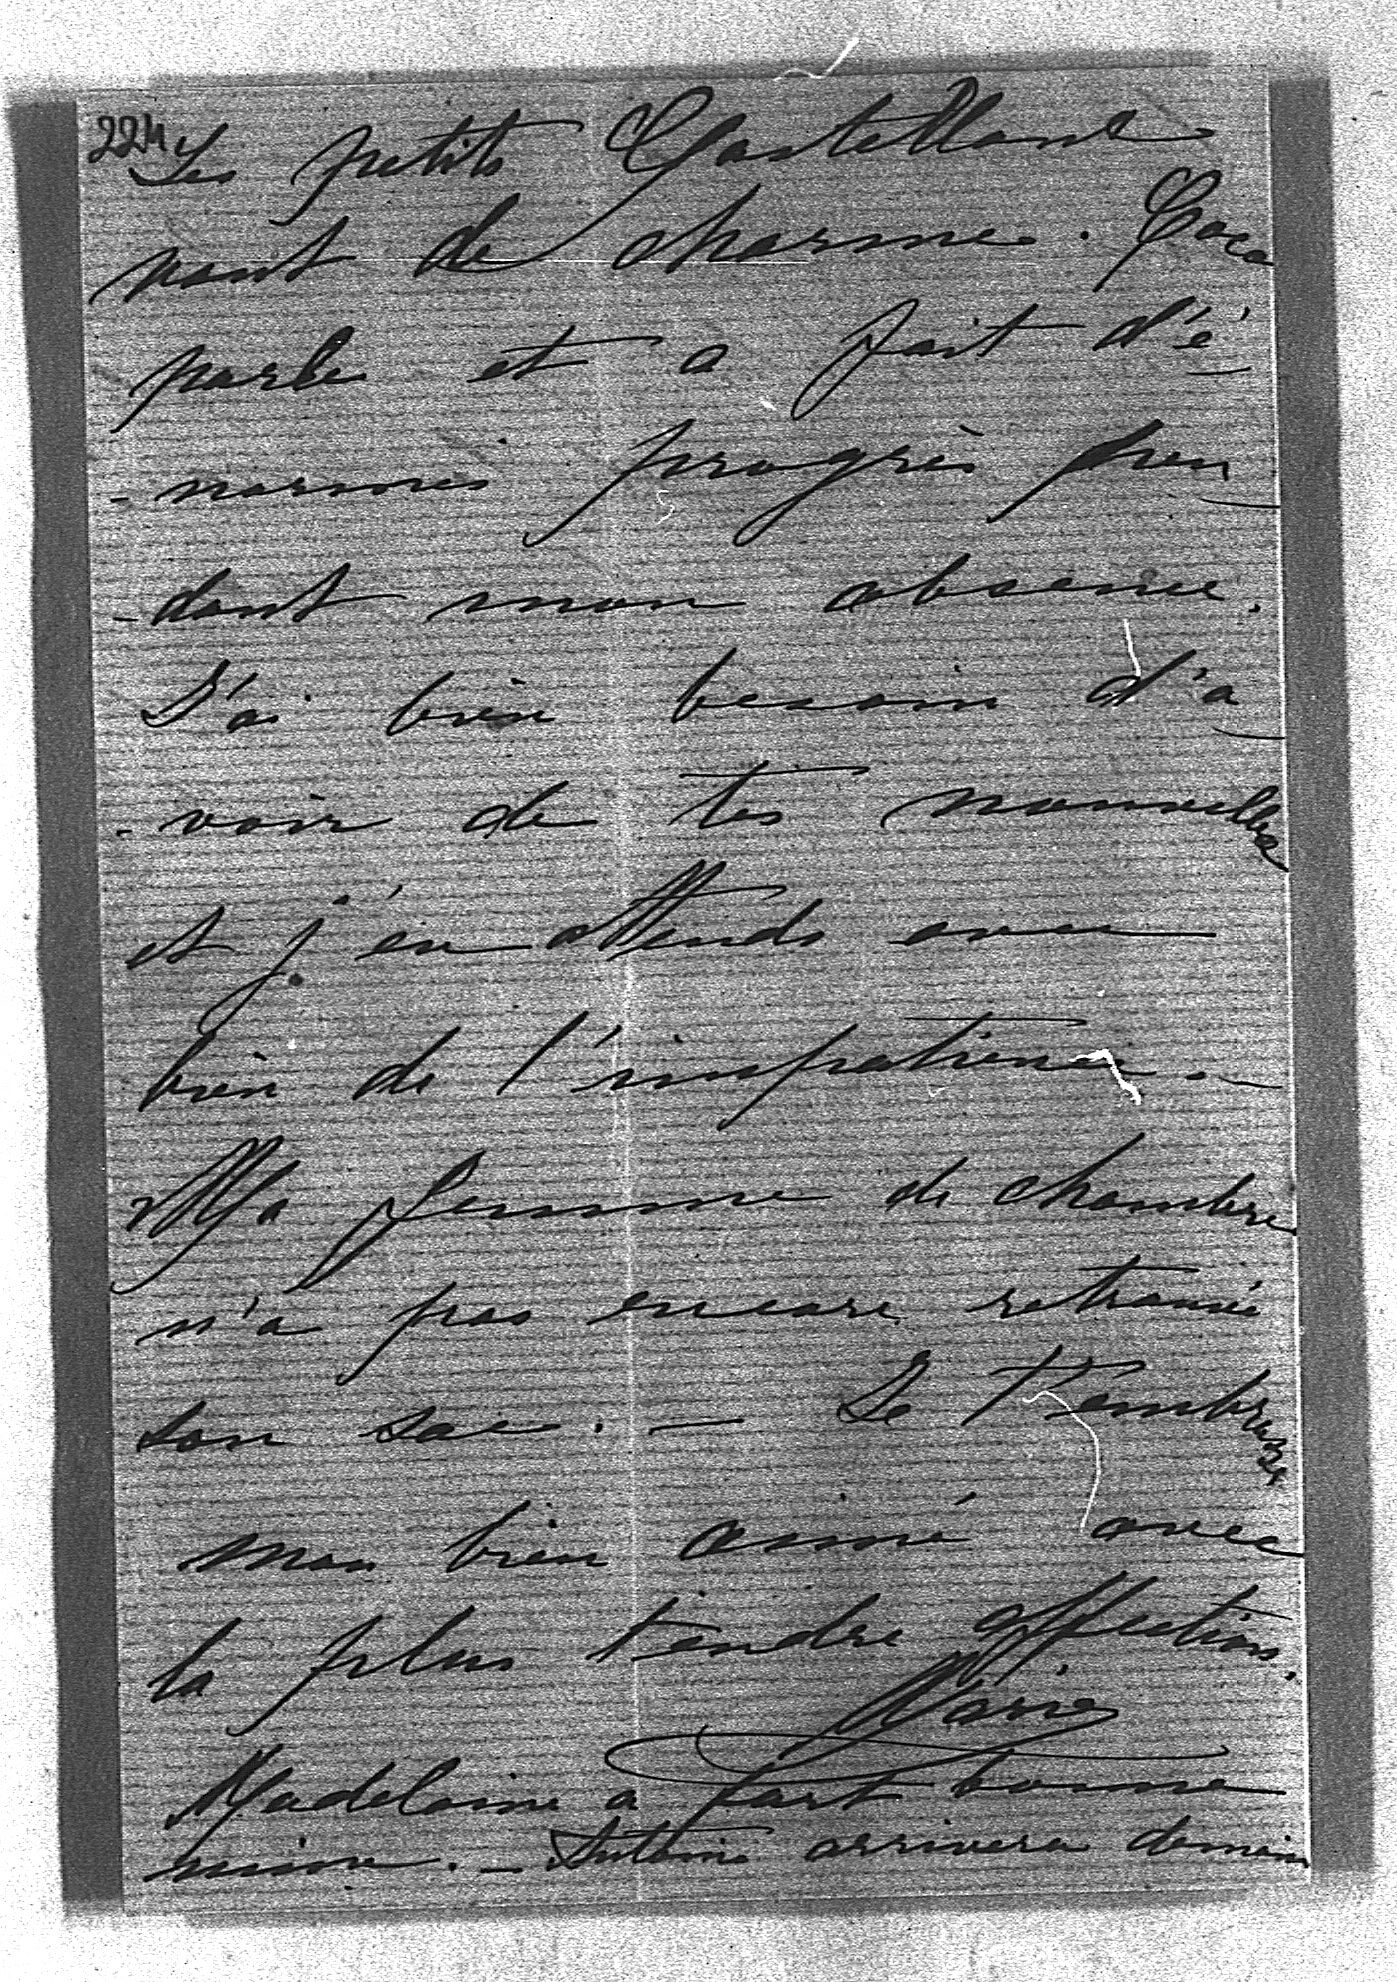 224
Les petits Castellane
sont de charme. Coco
parle et a fait d'é
-normes progrès pen
-dant mon absence.
J'ai bien besoin d'a
-voir de tes nouvelles
et j'en attends avec
bien de l'impatience. -
Ma femme de chambre
n'a pas encore retrouvé
son sac. - Je t'embrasse
mon bien aimé avec
la plus tendre affection.
Marie
Madeleine a fort bonne
mine. - Antoine arrivera demain